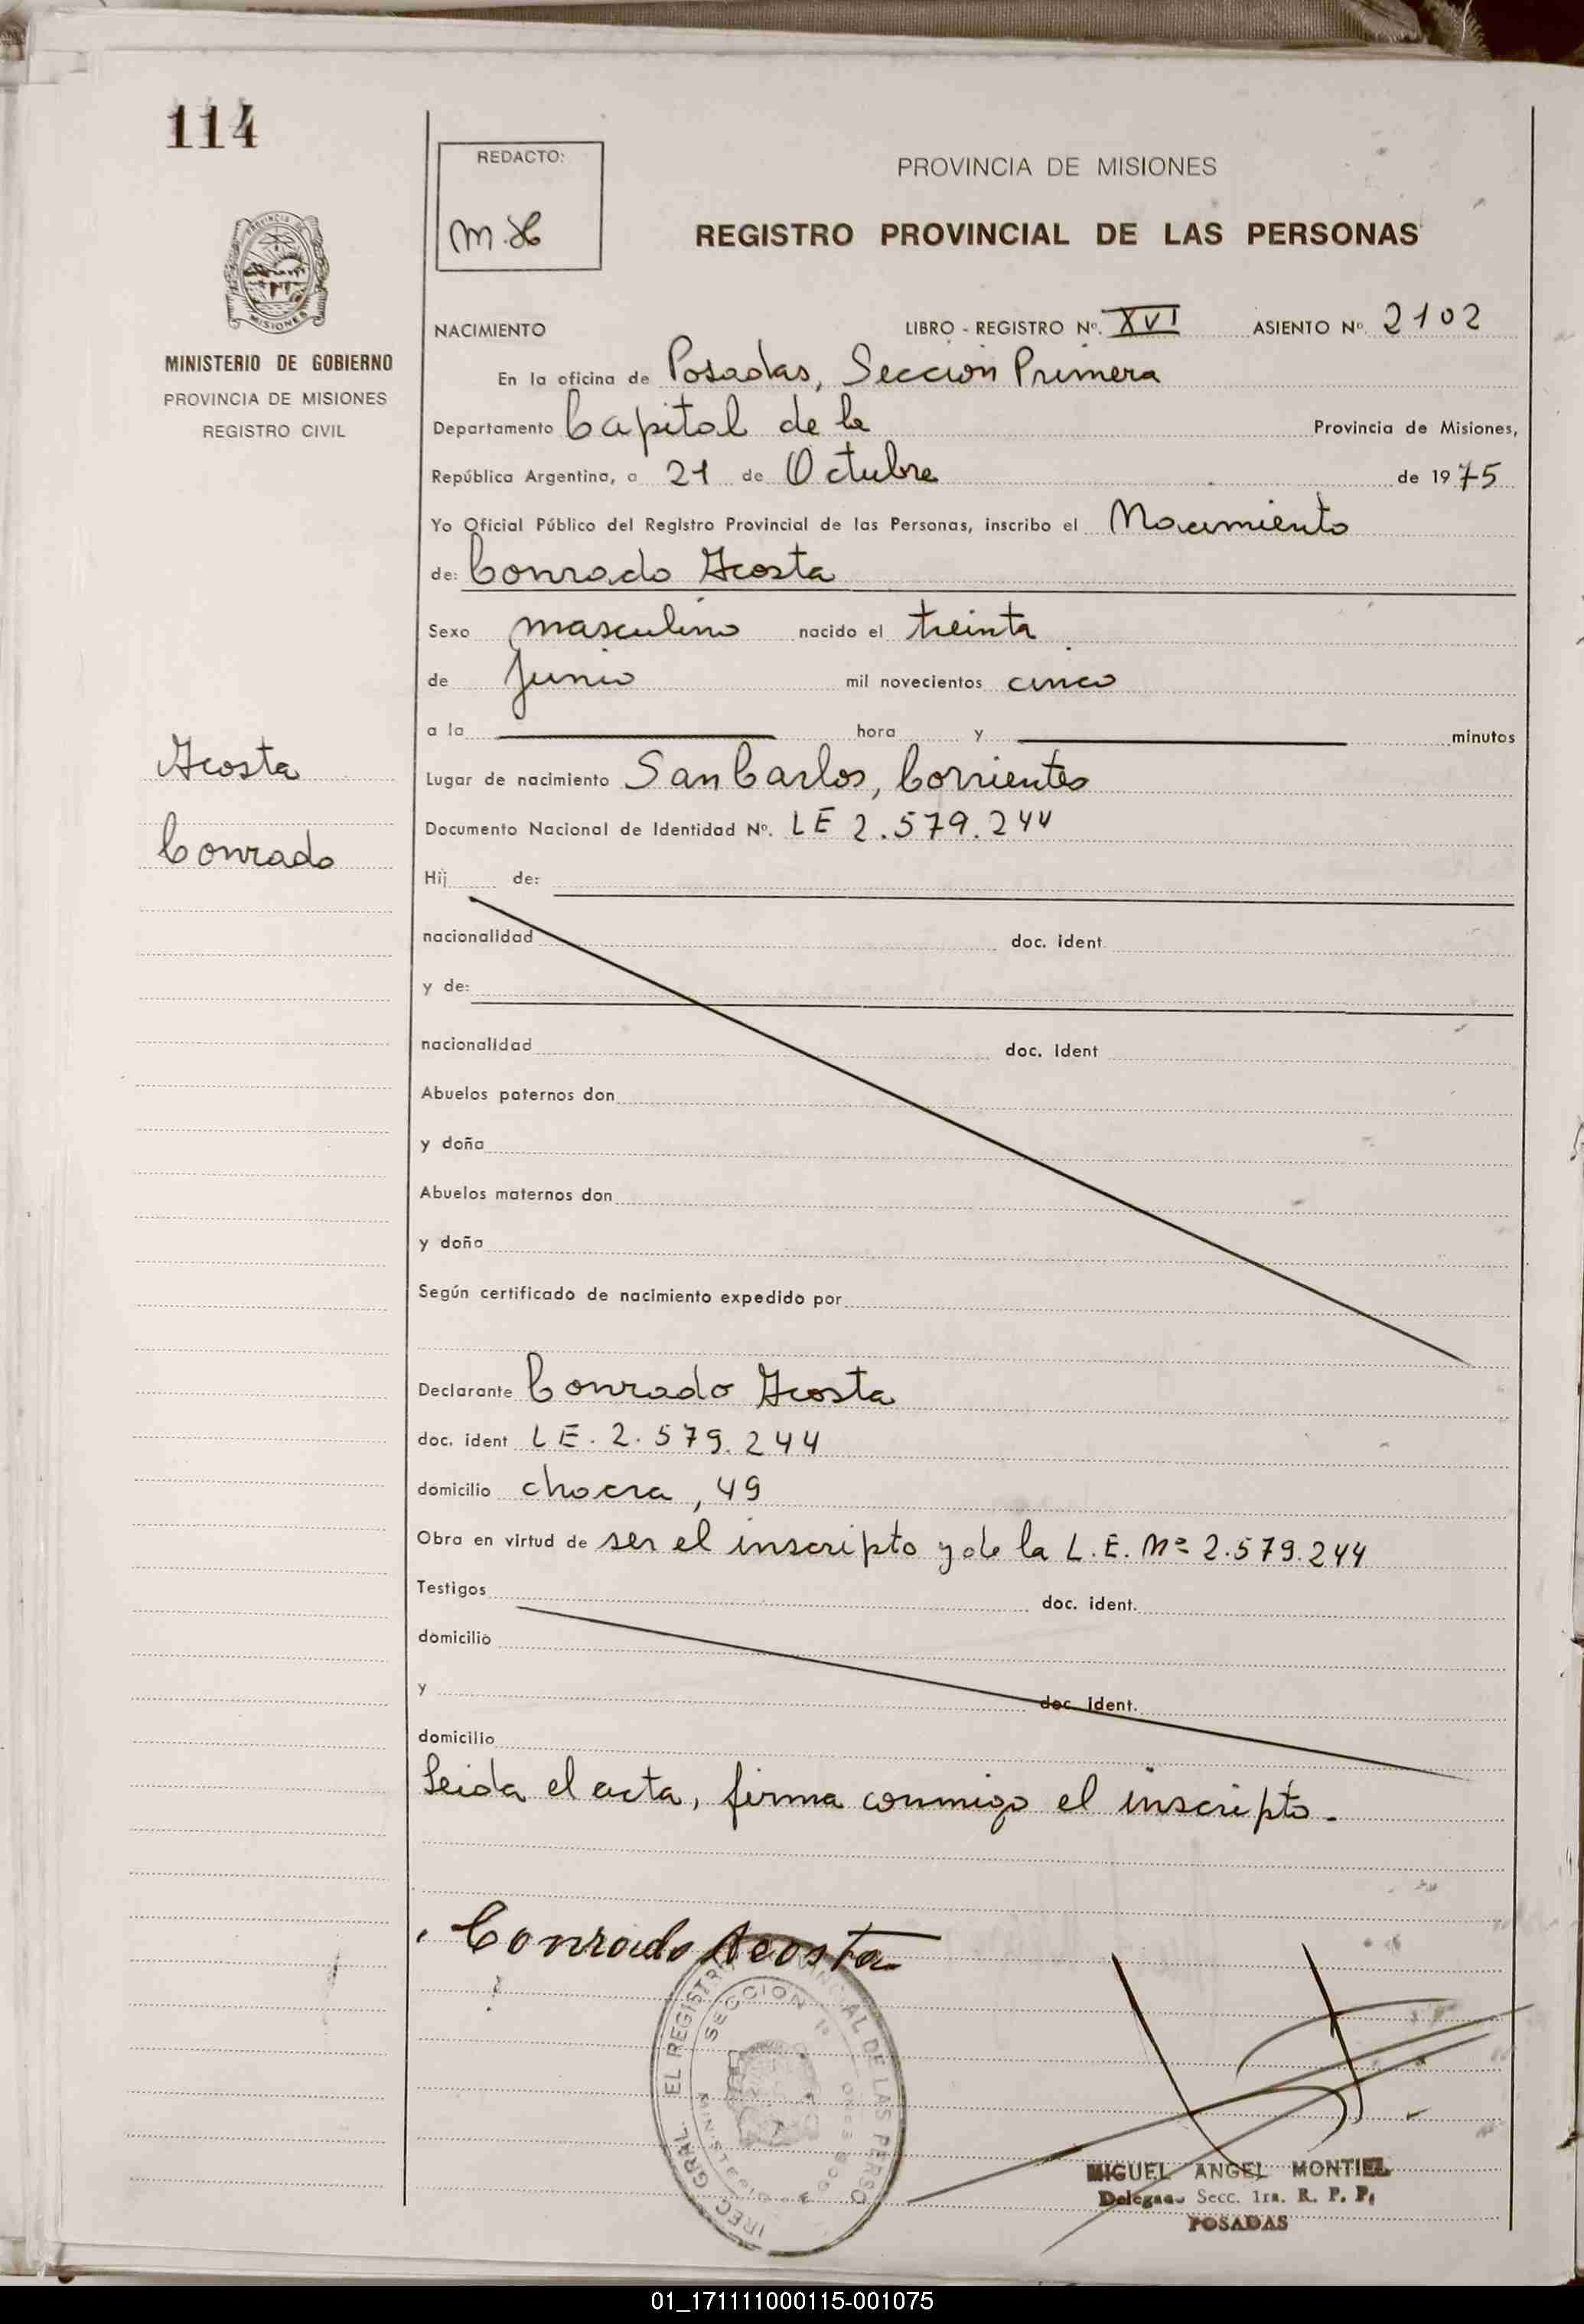 114
REDACTO:
M.H
PROVINCIA DE MISIONES
REGISTRO PROVINCIAL DE LAS PERSONAS
MISIONES
MINISTERIO DE GOBIERNO
PROVINCIA DE MISIONES
REGISTRO CIVIL
NACIMIENTO LIBRO - REGISTRO Nº. XVI ASIENTO Nº. 2102
En la oficina de Posadas, Sección Primera
Departamento Capital de la Provincia de Misiones,
República Argentina, a 21 de Octubre de 1975
Yo Oficial Público del Registro Provincial de las Personas, inscribo el Nacimiento
de: Conrado Acosta
Sexo masculino nacido el treinta
de Junio mil novecientos cinco
a la hora y minutos
Acosta
Conrado
Lugar de nacimiento San Carlos, Corrientes
Documento Nacional de Identidad Nº. LE 2.579.244
Hij de:
nacionalidad doc. ident
y de:
nacionalidad doc. ident
Abuelos paternos don
y doña
Abuelos maternos don
y doña
Según certificado de nacimiento expedido por
Declarante Conrado Acosta
doc. ident LE. 2.579.244
domicilio chacra, 49
Obra en virtud de ser el inscripto y de la L.E. Nº 2.579.244
Testigos doc. ident.
domicilio
y doc. ident.
domicilio
Leida el acta, firma conmigo el inscripto.
Conrado Acosta
SECCION 1ª
MIGUEL ANGEL MONTIEL
Delegado Secc. 1ra. R. P. P.
POSADAS
01_171111000115-001075